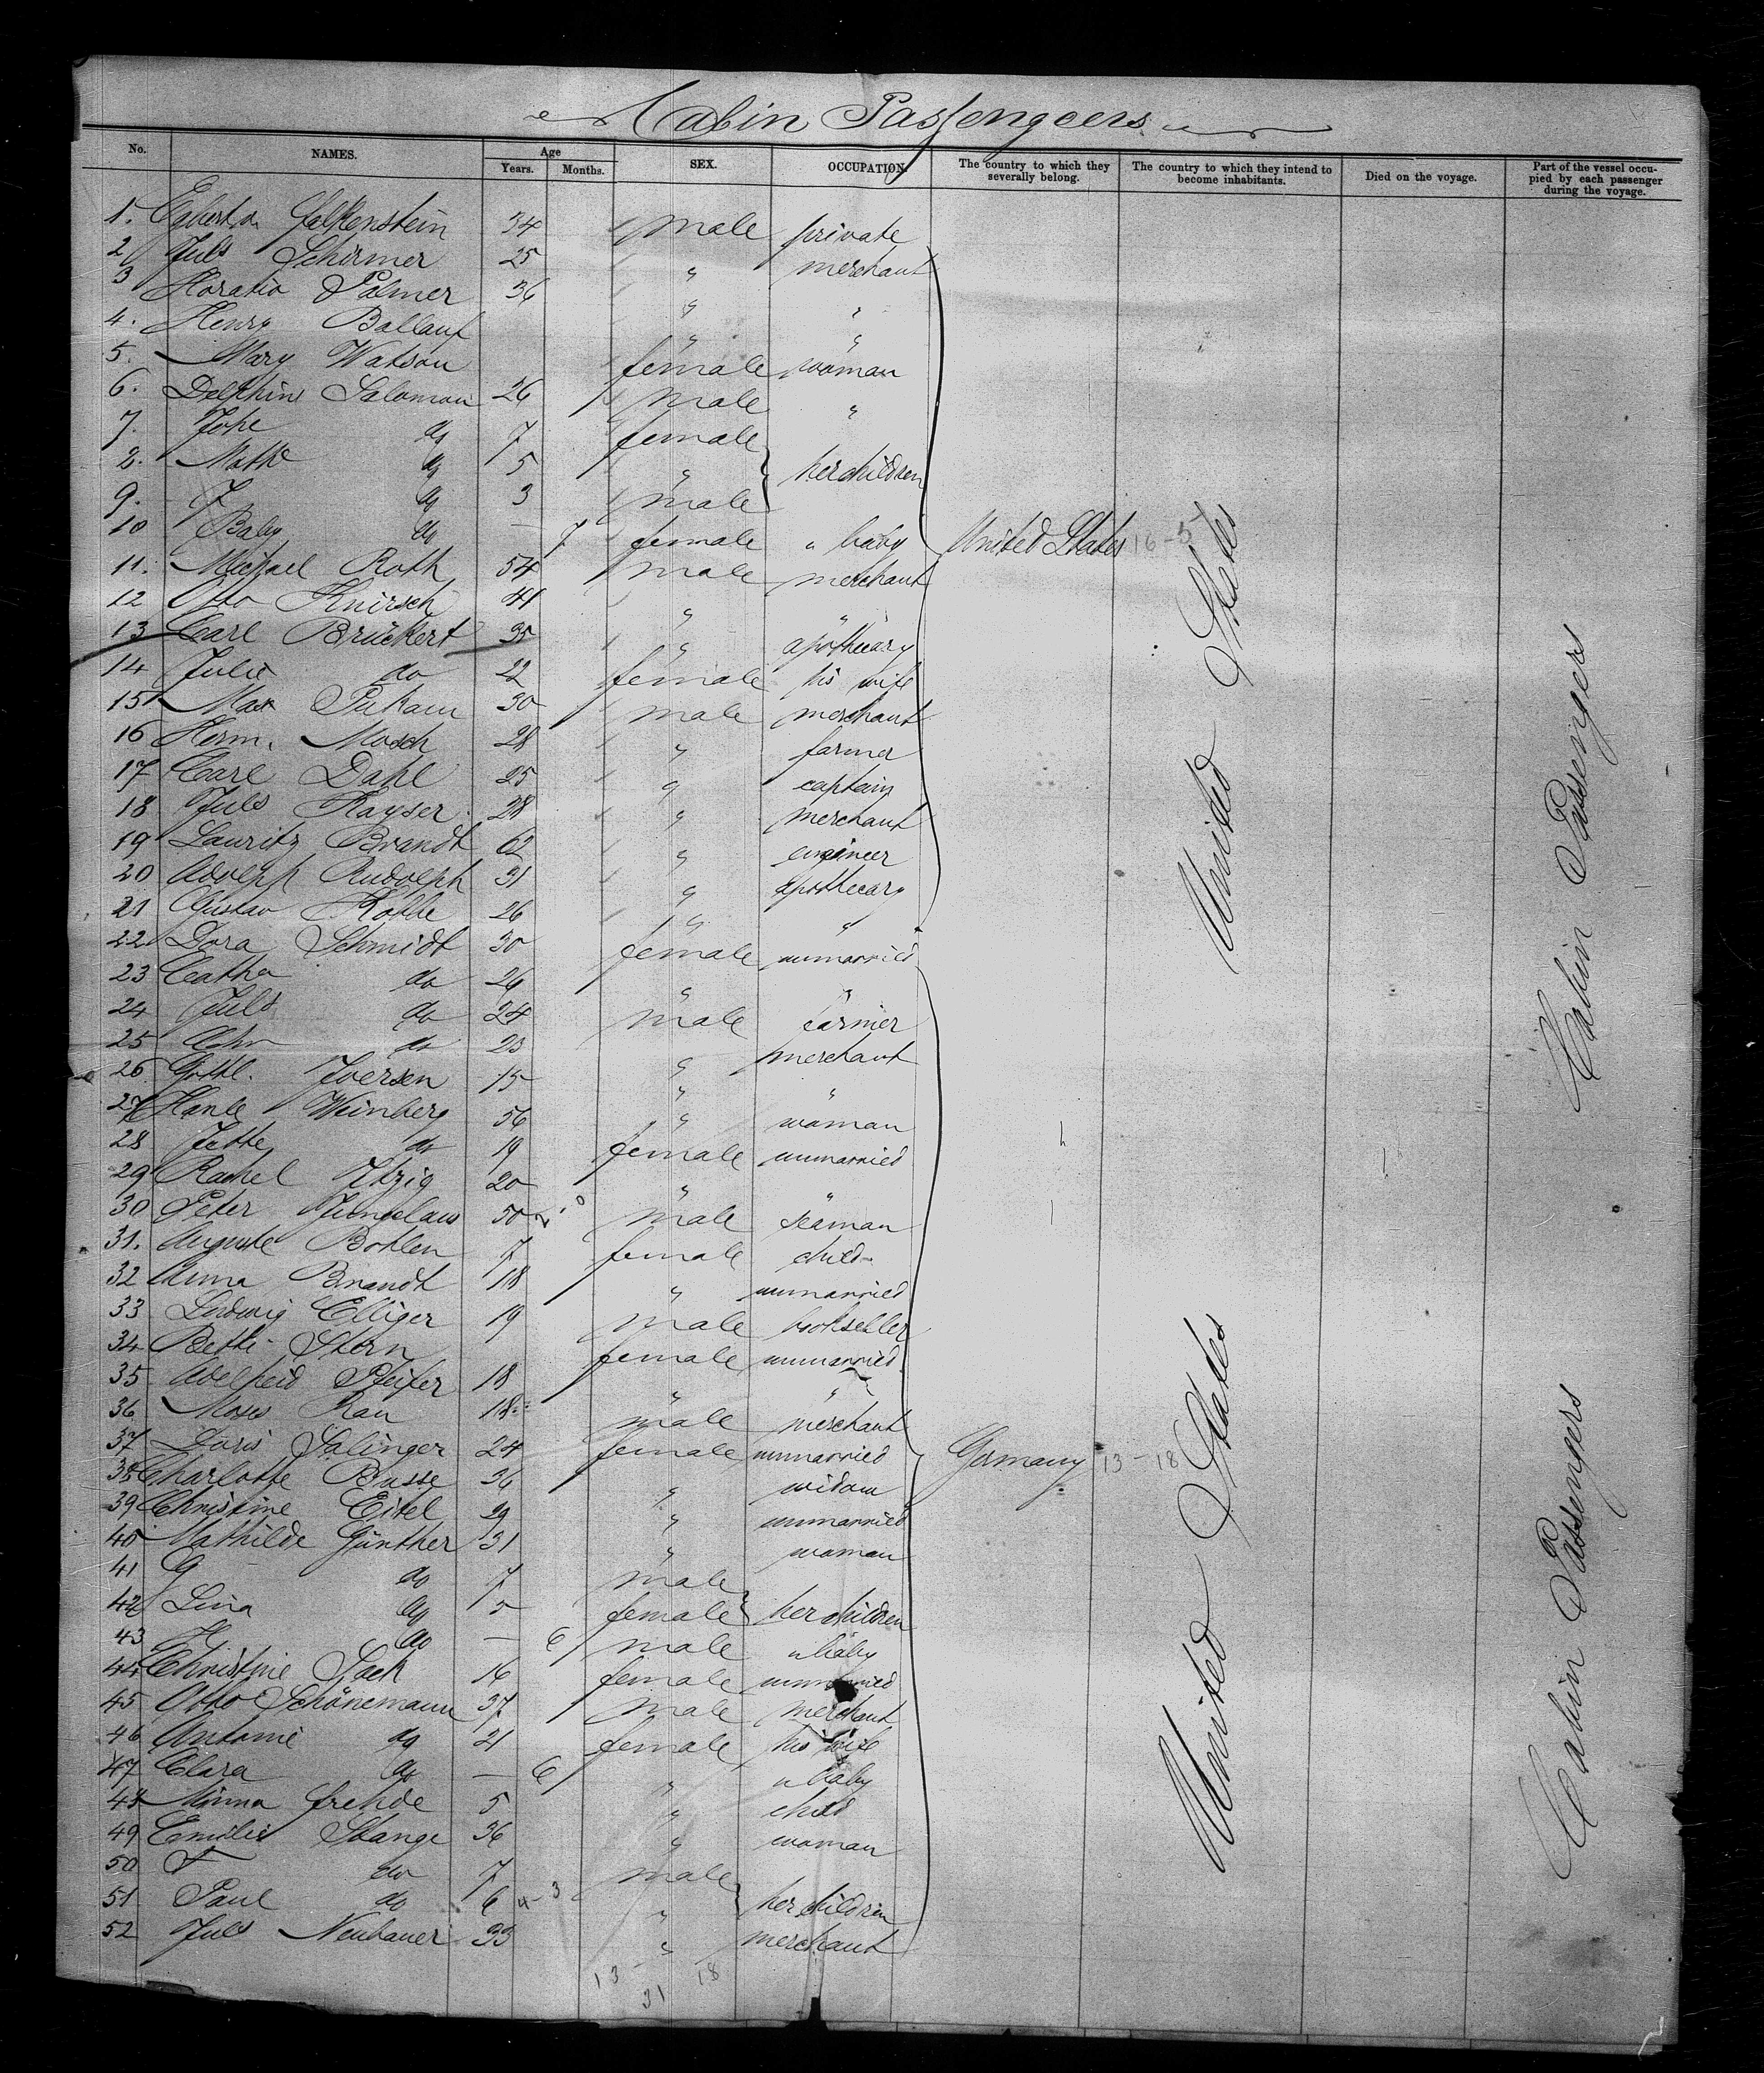 Cabin Passengeers
No. NAMES. Age Years. Months. SEX. OCCUPATION. The country to which they severally belong. The country to which they intend to become inhabitants. Died on the voyage. Part of the vessel occupied by each passenger during the voyage.
1. Falkenstein 34 male private
2 Juls Schirmer 25 " merchant
3 Horatio Palmer 36 " "
4. Henry Ballauf " "
5. Mary Watson female woman
6. Delphine Salomon 26 male "
7. do 7 female
8. do 5 " her children
9. J do 3 male
10 Baby do — 7 female " baby United States 16-5
11. Michael Roth 54 male merchant
12 Otto Knirsch 41 " "
13 Carl Brückert 35 " apothecary
14 Julie do 22 female his wife
15 Max 30 male merchant
16 Herm. Mosch 28 " farmer
17 Carl Dahl 25 " captain
18 Juls Kayser 28 " merchant
19 Lauritz Brandt 62 " engineer
20 Adolph Rudolph 31 " apothecary
21 Gustav Kobbe 26 " "
22 Dora Schmidt 30 female unmarried
23 Catha do 26 " "
24 Juls do 24 male farmer
25 do 23 " merchant
26 Gottl. Iversen 15 " "
27 Hanle Weinberg 56 " woman
28 Jette do 19 female unmarried
29 Rachel Itzig 20 " "
30 Peter 50 male seaman
31. Auguste Bohlen 7 female child
32 Anna Brandt 18 " unmarried
33 Ludwig Elliger 19 male bookseller
34 Bethi Stern female unmarried
35 Adelheid Pfeifer 18 " "
36 Moses Rau 18 male merchant
37 Doris Salinger 24 female unmarried Germany 13-18
38 Charlotte Busse 36 " widow
39 Christine Eitel 29 " unmarried
40 Mathilde Günther 31 " woman
41 G do 7 male
42 Lina do 5 female her children
43 do — 6 male " baby
44 Christine Sack 16 female unmarried
45 Otto Schönemann 37 male merchant
46 Antonie do 21 female his wife
47 Clara do — 6 " " baby
48 Minna Frehde 5 " child
49 Emilie Stange 36 " woman
50 F do 7 male
51 Paul do 6 4-3 " her children
52 Juls Neubauer 33 " merchant
13 - 18
31
United States
United States
Cabin Passengers
Cabin Passengers